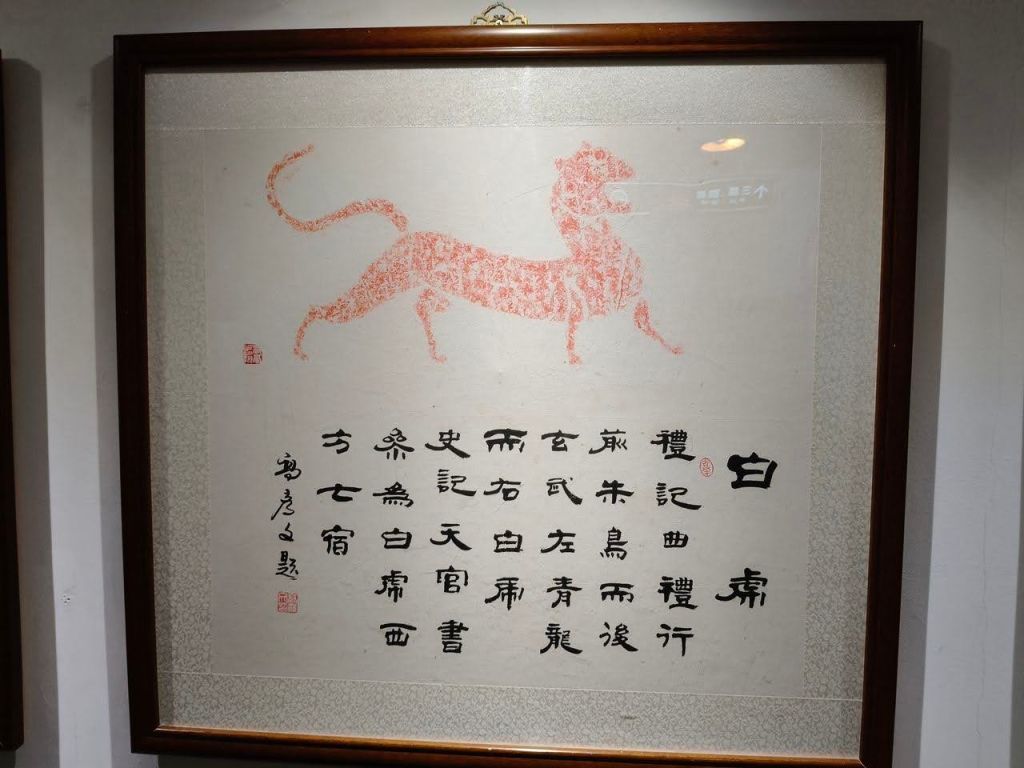 白虎
禮記曲禮行
前朱鳥而後
玄武左青龍
而右白虎
史記天官書
參為白虎西
方七宿
高彥文題